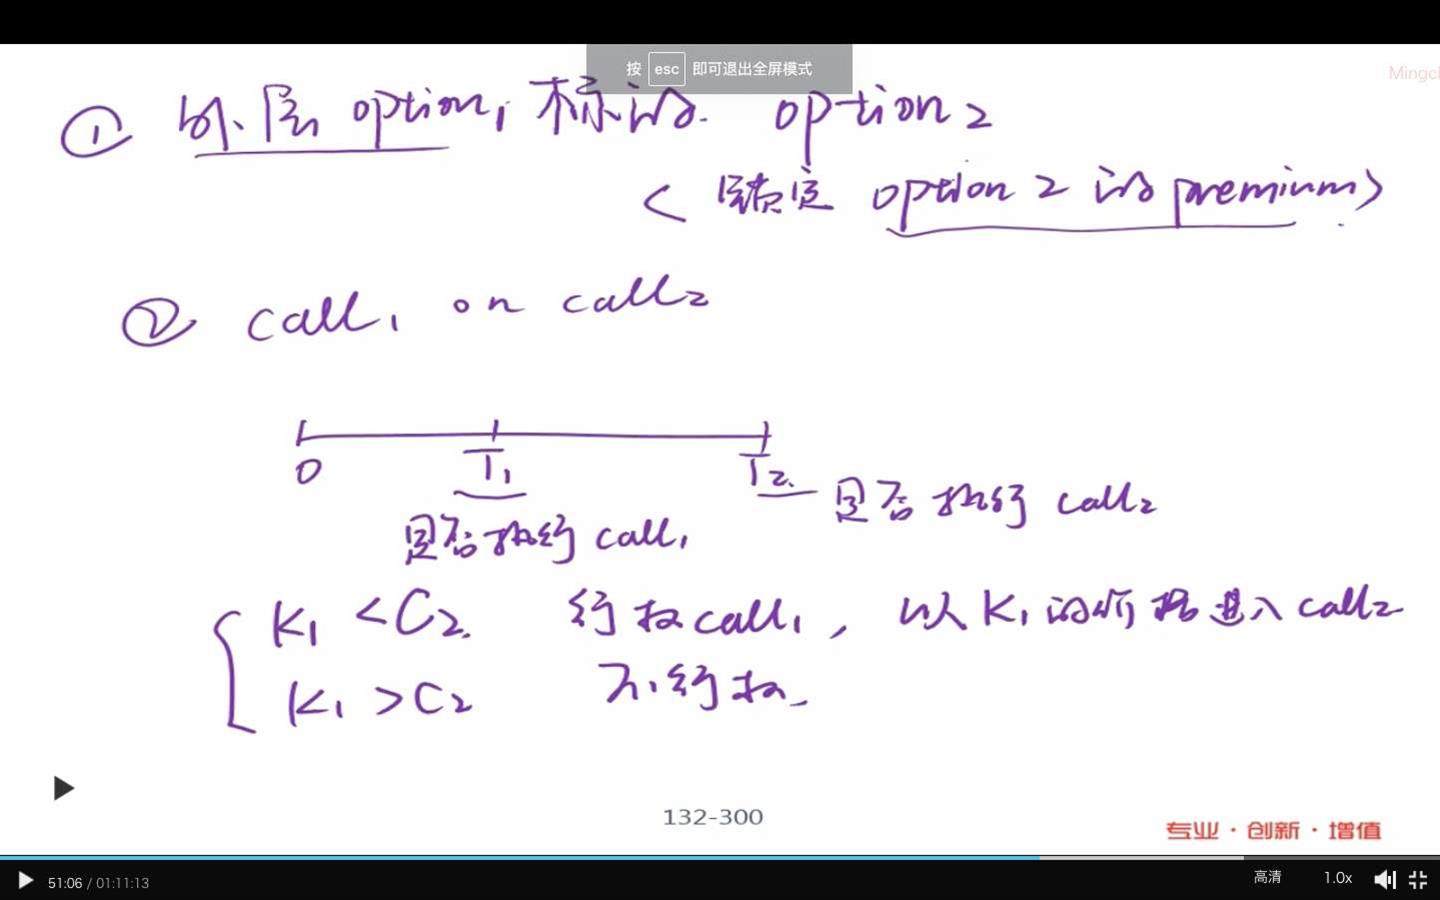 按 esc 即可退出全屏模式
Mingcl
① 外层 option₁ 标的 option₂
(锁定 option 2 的 premium)
② call₁ on call₂
0 T₁ T₂
是否执行 call₂
是否执行 call₁
K₁ < C₂ 行权 call₁, 以 K₁ 的价格进入 call₂
K₁ > C₂ 不行权
132-300
专业 · 创新 · 增值
51:06 / 01:11:13 高清 1.0x